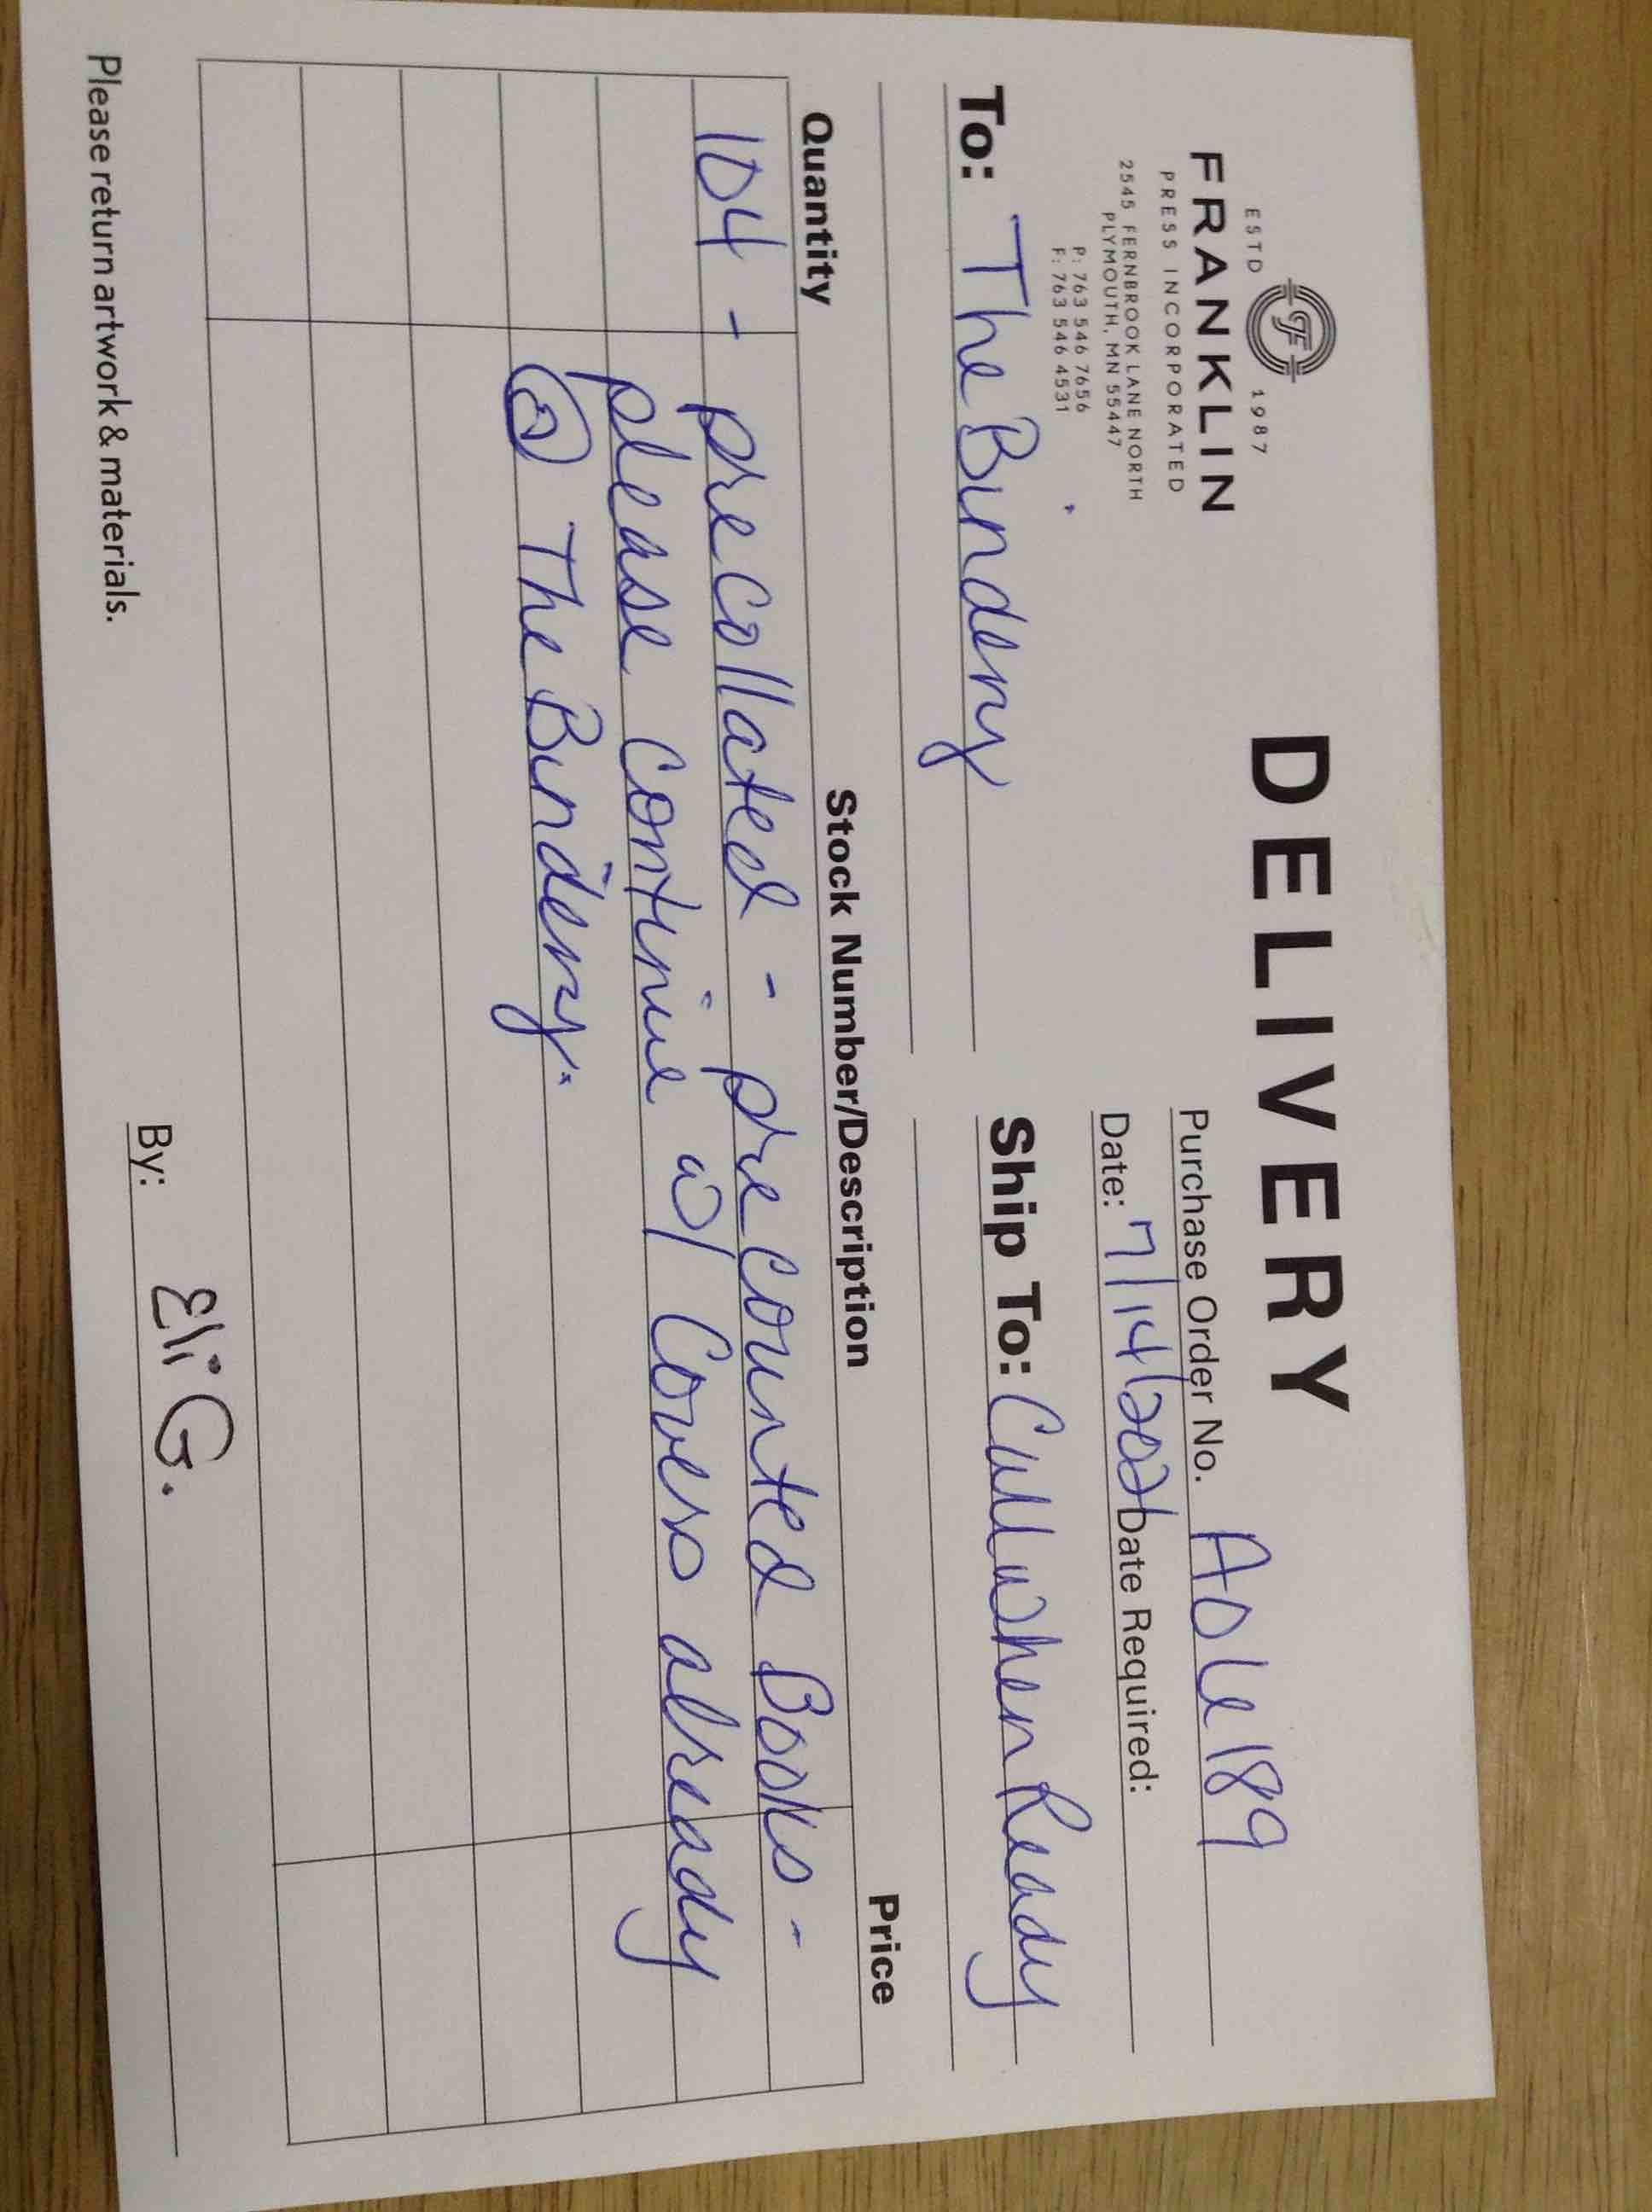 DELIVERY
ESTD 1987
FRANKLIN
PRESS INCORPORATED
2545 FERNBROOK LANE NORTH
PLYMOUTH, MN 55447
P: 763 546 7656
F: 763 546 4531
Purchase Order No. A0L189
Date: 7/14/2022 Date Required:
To: The Bindery
Ship To: Call when Ready
Quantity Stock Number/Description Price
104 - precollated - precounted Books -
please continue w/ Covers already
@ The Bindery.
Please return artwork & materials.
By: Eli G.